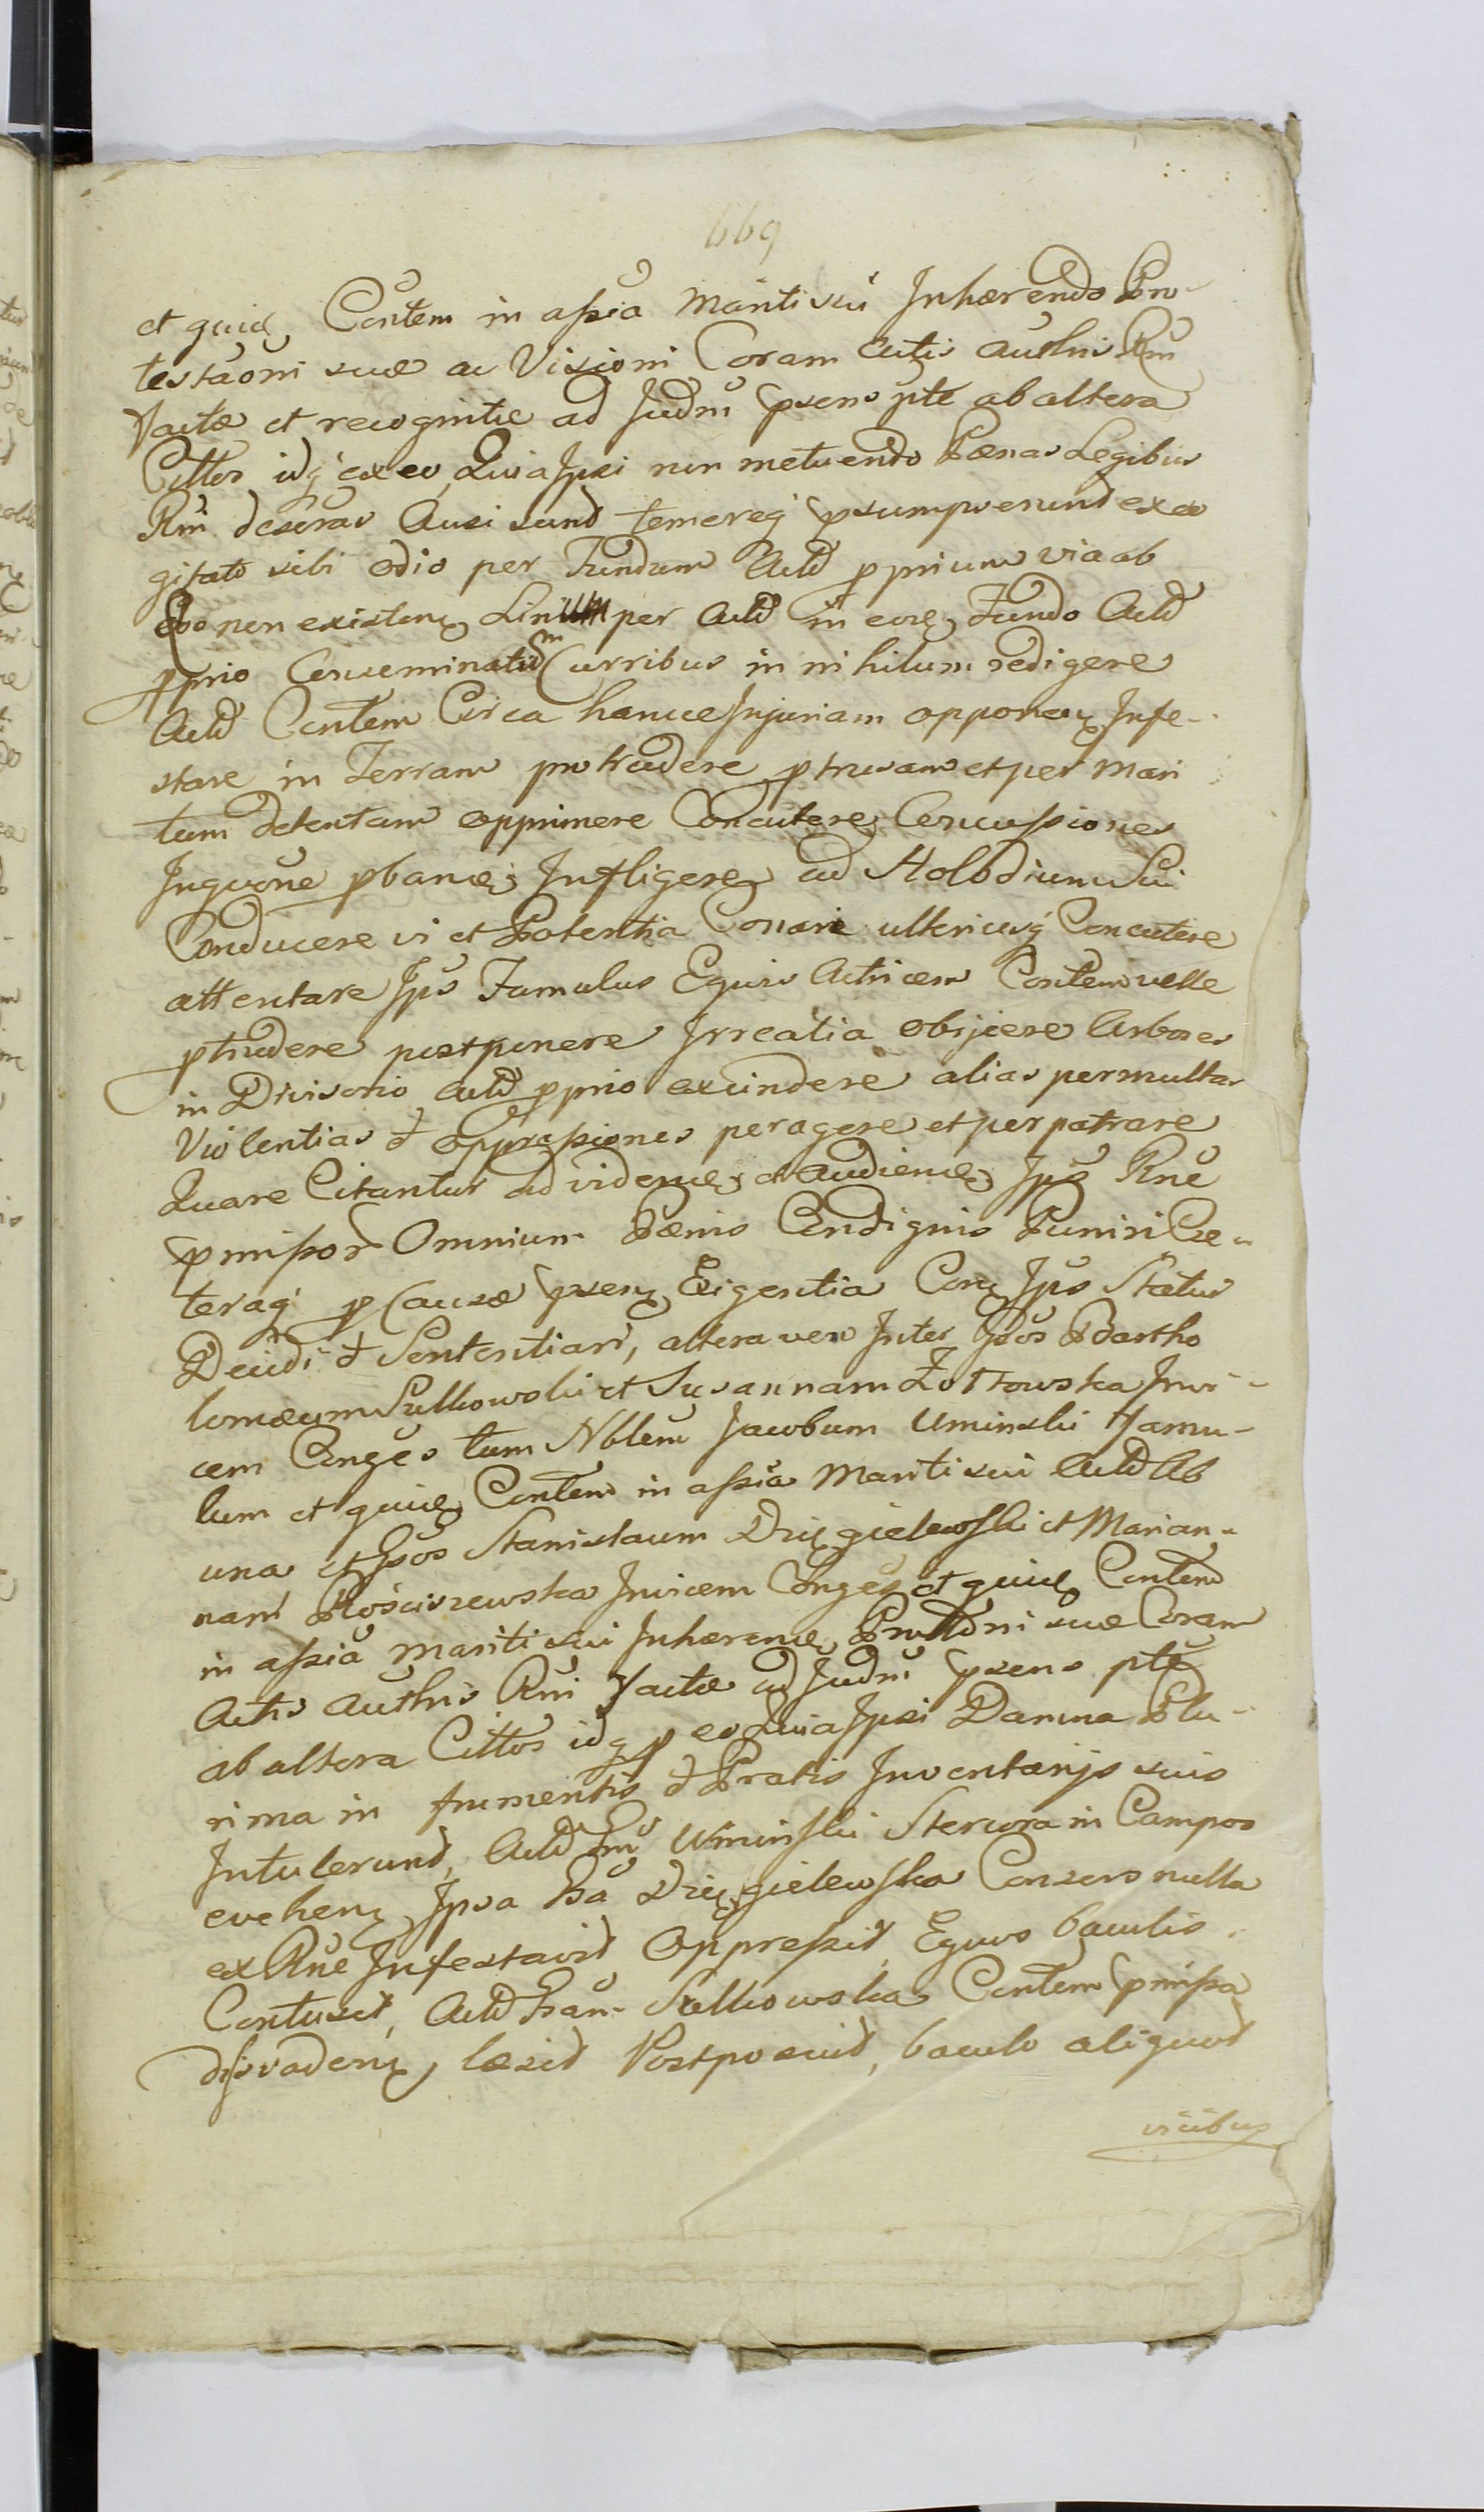 669
et quidę Contem in aßia Mariti sui Inhærendo Pro-
testaoni suæ ac Visioni Coram Actis Authis Rni
Factæ et recognitæ ad Judm psens pte ab altera
Cittos idq ex eo Quia Ipsi non metuendo Pænas Legibus
Rni descras Ausi sund temereq psumpserund exco
gitato sibi odio per Fundum Actd pprium via ab
Evo non existenę Linum per Actd in eodę Fundo Actd
pprio Conseminatum Curribus in nihilum redigere
Actd Contem Circa hancce Injuriam opponenę Infe-
stare in Terram protrudere ptrusam et per Mari
tum detentam opprimere Concutere Concussiones
Inquone pbandę Infligere ad Allodium Sui
Conducere vi et Potentia Conari ulteriusq Concutere
attentare Ips Famulus Equis Actricem Contem velle
ptrudere postponere Irrealia obijcere Arbores
in Divisorio Actd pprio excindere alias permultas
Violentias & oppreßiones peragere et perpatrare
Quare Citantur ad videndę et Audiendę Ips Rne
pmißor Omnium Pænis Condignis Puniri Cæ-
teraq p Causæ psenę Exigentia Conę Ips Status
Decidi & Sententiari, altera vero Inter Gsos Bartho
lomæum Sulkowski et Susannam Żółtowska Invi-
cem Conges tum Nblem Jacobum Uminski Famu-
lum et quidę Contem in aßia Mariti sui Actd Ab
una et Gsos Stanislaum Dzięgielewski et Marian-
nam Rościszewska Invicem Conges et quidę Contem
in aßia mariti sui Inhærendę Prottni suæ Coram
Actis Authis Rni Factæ ad Judm psens pte
ab altera Cittos idq p eo Quia Ipsi Damna Plu-
rima in frumentis & Pratis Inventarijs suis
Intulerund, Actd Uminski Stercora in Campos
evehenę Ipsa Gsa Dzięgielewska Consors nulla
ex Rne Infestavid Oppreßit Equos baculis
Contusit, Actd Gsam Sulkowska Contem pmißa
dissvadenę læsid Postposuid, baculo aliquod
vicibus